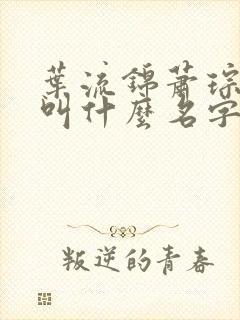 葉流錦蕭琮
叫什麼名字
叛逆的青春